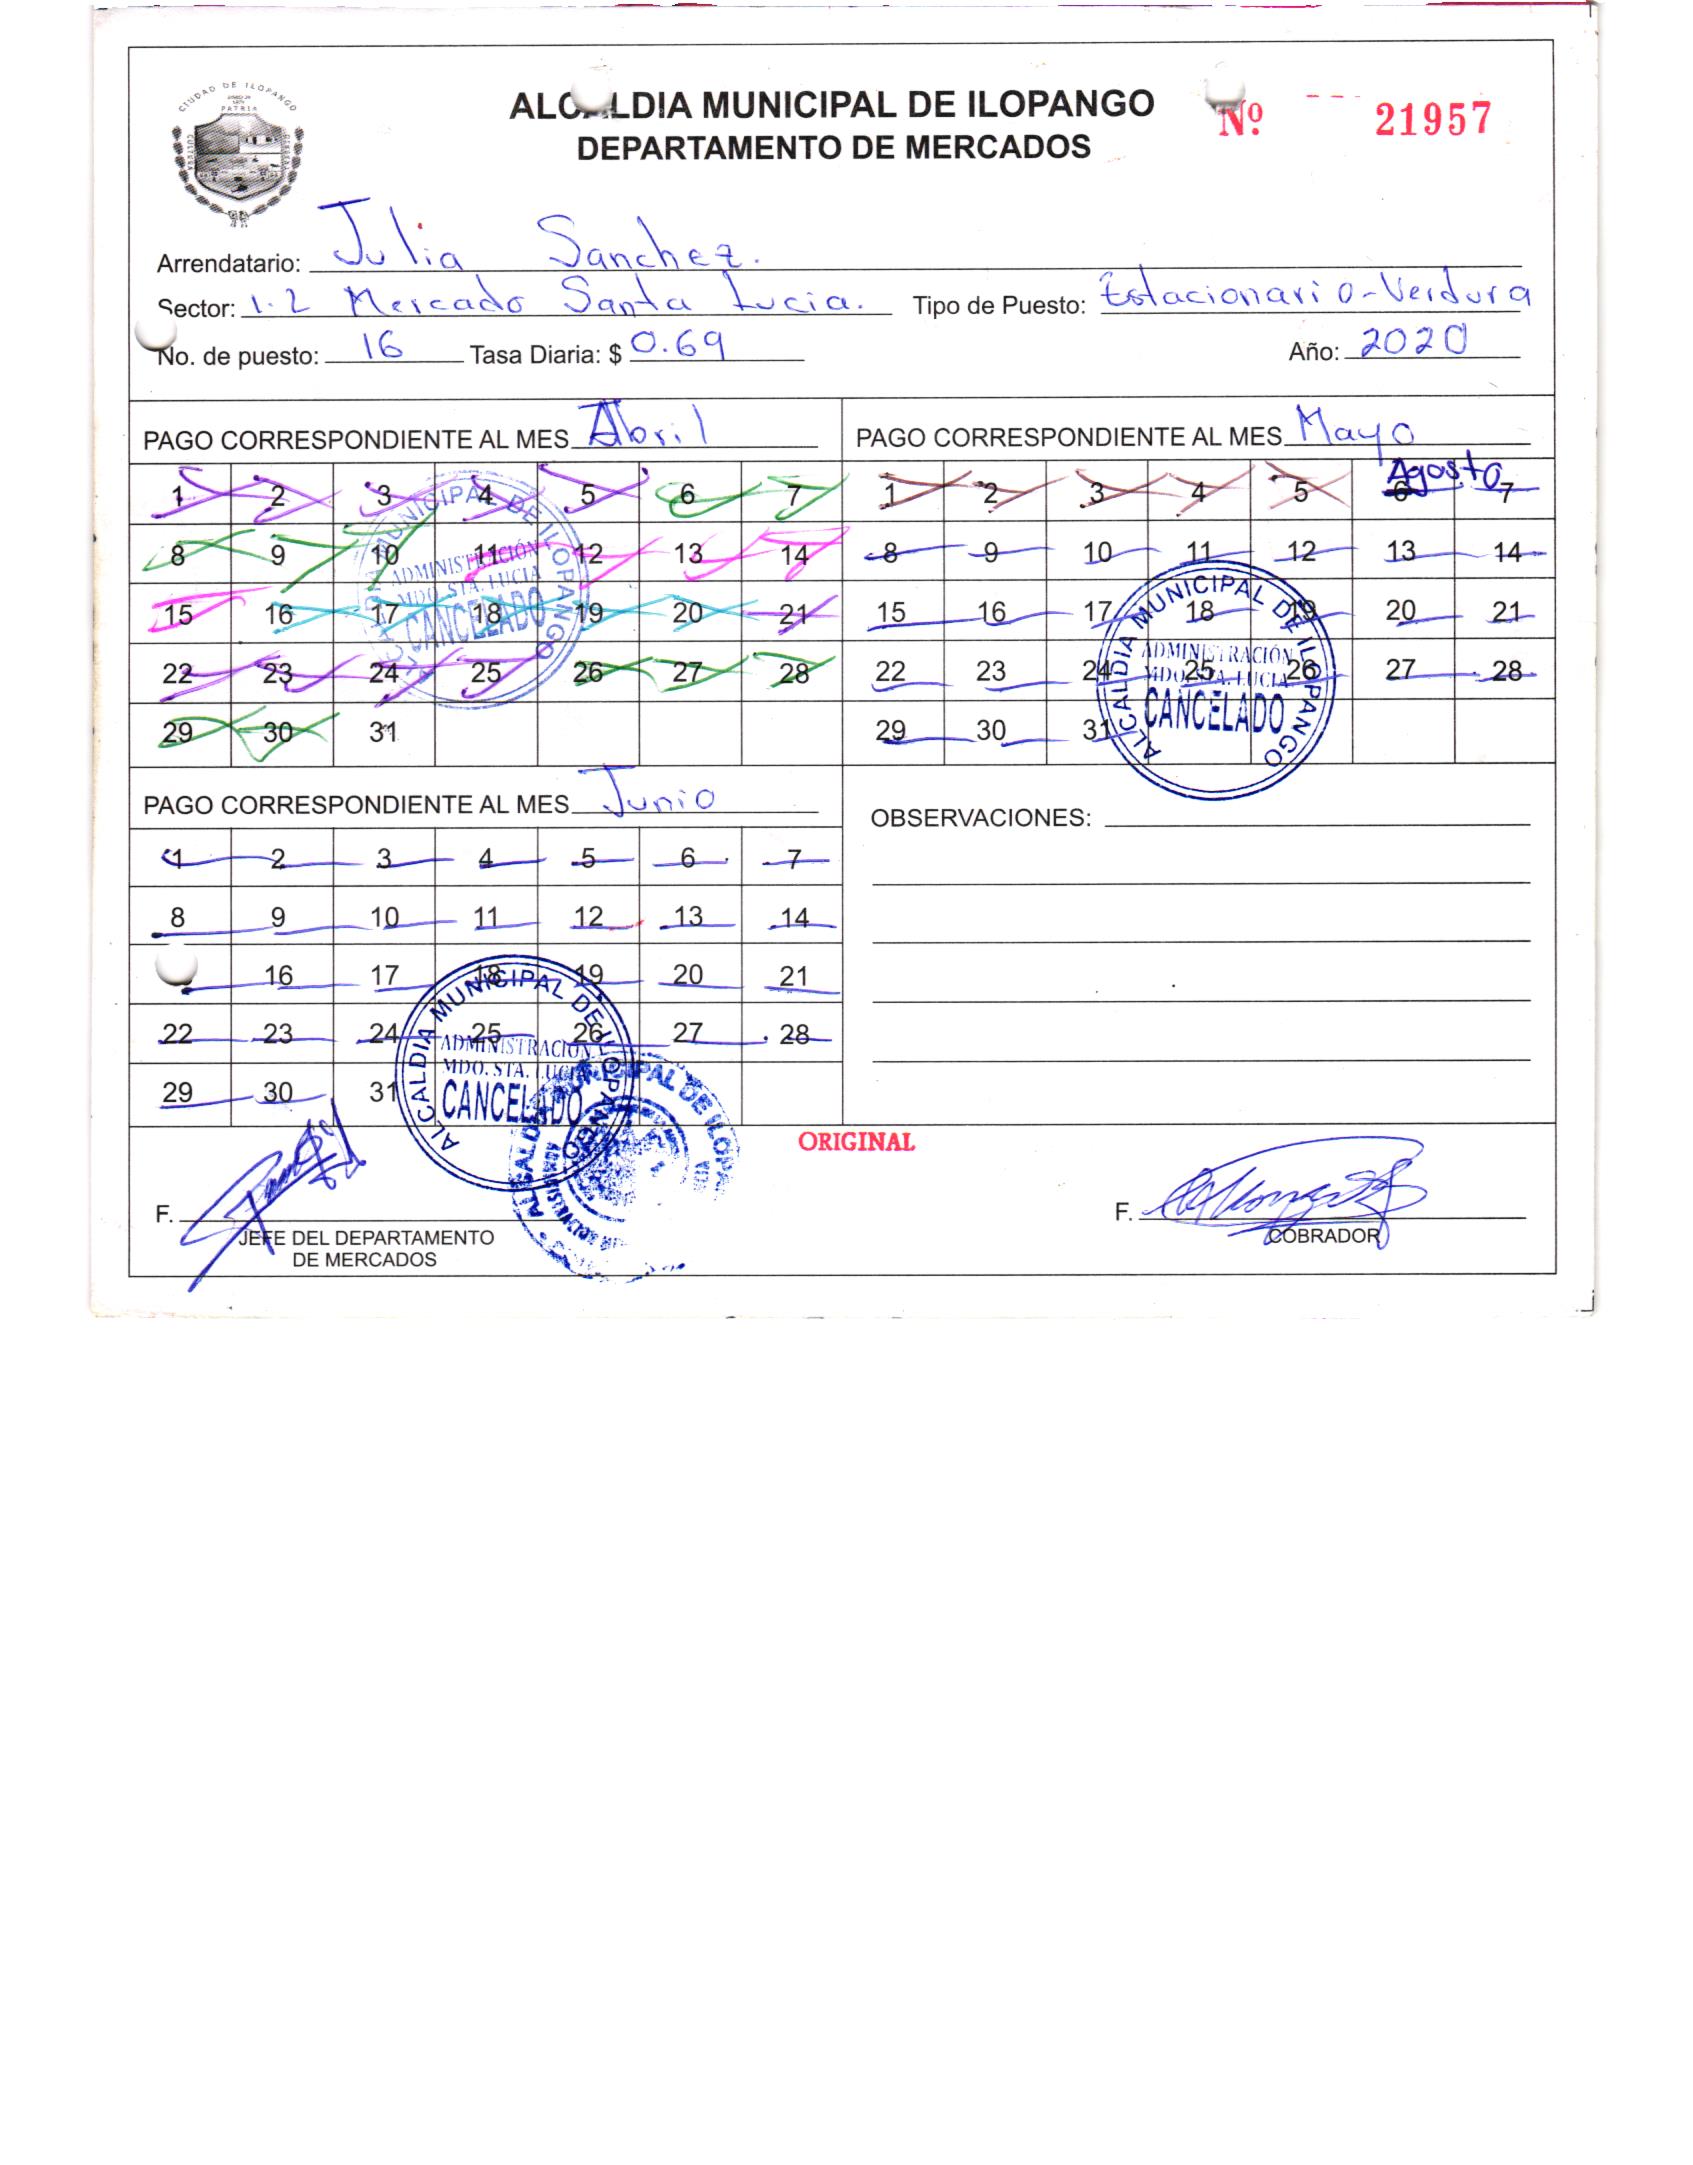 CIUDAD DE ILOPANGO
PATRIA
CULTURA
ALCALDIA MUNICIPAL DE ILOPANGO
DEPARTAMENTO DE MERCADOS
Nº 21957
Arrendatario: Julia Sanchez.
Sector: 1.2 Mercado Santa Lucia. Tipo de Puesto: Estacionario-Verdura
No. de puesto: 16 Tasa Diaria: $ 0.69 Año: 2020
PAGO CORRESPONDIENTE AL MES Abril
1 2 3 4 5 6 7
8 9 10 11 12 13 14
15 16 17 18 19 20 21
22 23 24 25 26 27 28
29 30 31
ALCALDIA MUNICIPAL DE ILOPANGO
ADMINISTRACIÓN
MDO. STA. LUCIA
CANCELADO
PAGO CORRESPONDIENTE AL MES Mayo
Agosto
1 2 3 4 5 6 7
8 9 10 11 12 13 14
15 16 17 18 19 20 21
22 23 24 25 26 27 28
29 30 31
ALCALDIA MUNICIPAL DE ILOPANGO
ADMINISTRACIÓN
MDO. STA. LUCIA
CANCELADO
PAGO CORRESPONDIENTE AL MES Junio
1 2 3 4 5 6 7
8 9 10 11 12 13 14
16 17 18 19 20 21
22 23 24 25 26 27 28
29 30 31
ALCALDIA MUNICIPAL DE ILOPANGO
ADMINISTRACIÓN
MDO. STA. LUCIA
CANCELADO
OBSERVACIONES:
ORIGINAL
F.
JEFE DEL DEPARTAMENTO
DE MERCADOS
F.
COBRADOR